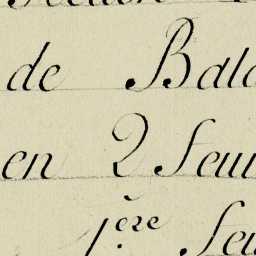 de Bala
en 2 Feui
1ère Feu